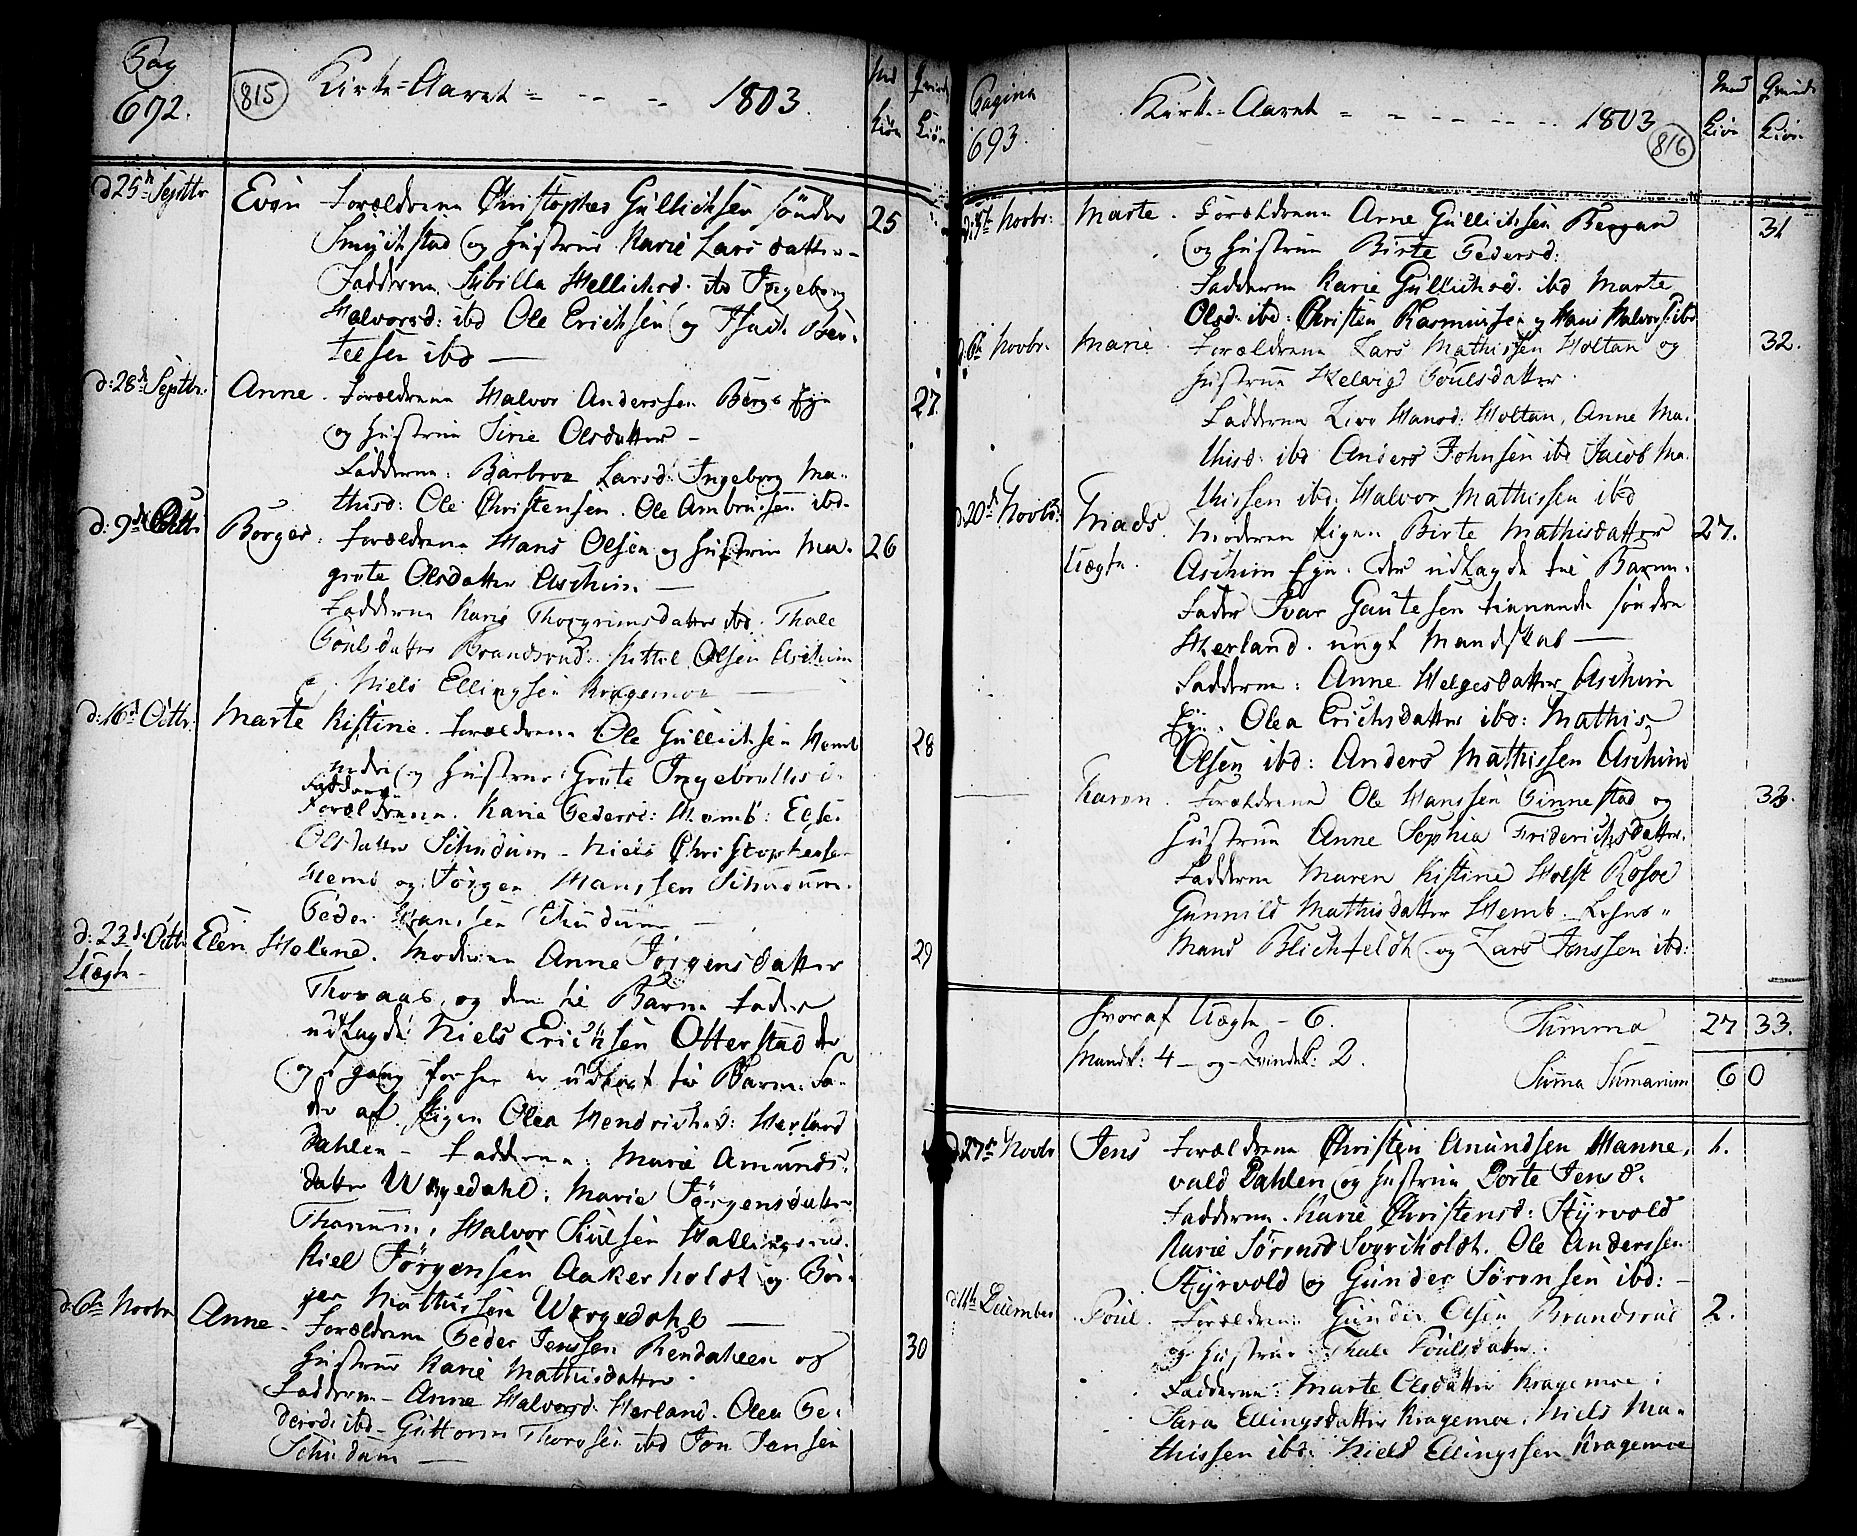 Pag
692.
815
Kirke-Aaret = -- -- 1803.
Mad
Kiøn
Qvind
Kiøn
d 25de Septbr Even Forældrene Christopher Gullichsen Søndre 25
Smuchstad og Hustrue Karie Lars datter -
Fadderne Sibilla Mellichsd. ibd Ingeborg
Halvorsd: ibd Ole Erichsen og Isach Ben-
telsen ibd —
d: 28de Septbr. Anne. Forældrene Halvor Anderssen Berge Eje 27.
og Hustrue Sirie Olsdatter -
Fadderne: Barbroe Larsd: Ingeborg Ma-
thisd: Ole Christensen. Ole Ambrosen ibd.
d: 9de Octbr Børger. Forældrene Hans Olsen og Hustrue Ma- 26
grete Olsdatter Aschim —
Fadderne Karie Thorgrimsdatter ibd. Thale
Poulsdatter Brandsrud. Kittel Olsen Aschim
og Niels Ellingsen Kragemoe —
d: 16de Octbr. Marte Kistine. Forældrene Ole Gullichsen Hemb 28
nedre og Hustrue Grete Ingebretsd
Fadderne
Forældrene. Karie Pedersd: Hemb: Else
Olsdatter Schudum - Niels Christophersen
Hemb og Jørgen Hanssen Schudum.
Peder Hanssen Schudum —
d: 23de Octbr Elen Helene. Moderen Anne Jørgensdatter 29
Uægte -
Thoraas, og den til Barne fader
udlagde Niels Erichsen Otterstad der
og 1 gang før her er udlagt til Barne-Fa-
der af Pigen Olea Hendrichsd: Herland
dahlen - Fadderne: Marie Amunds-
datter Wegedahl. Marie Jørgensdatter
Thanum, Halvor Siulsen Hallingsrud.
Kiel Jørgensen Aakerholdt og Bør-
ger Mathissen Wegedahl —
d: 6te Novbr Anne - Forældrene Peder Jenssen Rendahlen og 30
Hustrue Karie Mathisdatter.
Fadderne - Anne Halvorsd. Herland. Olea Pe-
dersd: ibd - Guttorm Thorssen ibd Jon Jensen
Schudum —
Pagina
693.
Kirke-Aaret = - -- -- -- 1803
816
Mand
Kiøn
Qvinde
Kiøn
d: 5te Novbr: Marte. Forældrene Arne Gullichsen Bergan 31
og Hustrue Birte Pedersd:
Fadderne Karie Gullichsd. ibd Marte
Olsd: ibd: Christen Rasmussen og Hans Halvors: ibd
d: 6te Novbr. Marie. Forældrene Lars Mathissen Holtan og 32.
Hustrue Helvig Poulsdatter.
Fadderne Live Hansd: Holtan, Anne Ma-
thisd: ibd Anders Johnsen ibd Jacob Ma-
thissen ibd: Halvor Mathissen ibd
d: 20de Novbr: Mads. Moderen Pigen Birte Mathisdatter 27.
Uægte.
Aschim Eje. Der udlagde til Barne-
Fader Ivar Gautesen tienende søndre
Herland. ungt Mandskab —
Fadderne: Anne Helgesdatter Aschim
Eje. Olea Erichsdatter ibd: Mathis
Olsen ibd: Anders Mathissen Aschim
Karen. Forældrene Ole Hanssen Findestad og 33.
Hustrue Anne Sophia Friderichsdatter.
Fadderne Maren Kistine Holst
Gunnild Mathisdatter Hemb. Lehns-
Mand Blichfeldt og Lars Jenssen ibd:
Hvoraf Uægte - 6. Summa 27 33.
Mandk: 4 - og - Qvindek: 2. Suma Sumarum 60
d 27de Novbr Jens Forældrene Christen Anundsen Hanne- 1.
vold Dahlen og Hustrue Dorte Jensd:
Fadderne. Karie Christensd: Styrvold
Karie Sørensd Svartholdt. Ole Anderssen
Styrvold og Gunder Sørensen ibd: -
d: 11te December Poul. Forældrene Gunder Olsen Brandsrud 2.
og Hustrue Thale Poulsdatter.
Fadderne: Marte Olsdatter Kragemoe:
Sara Ellingsdatter Kragemoe. Niels Ma-
thissen ibd: Niels Ellingssen Kragemoe